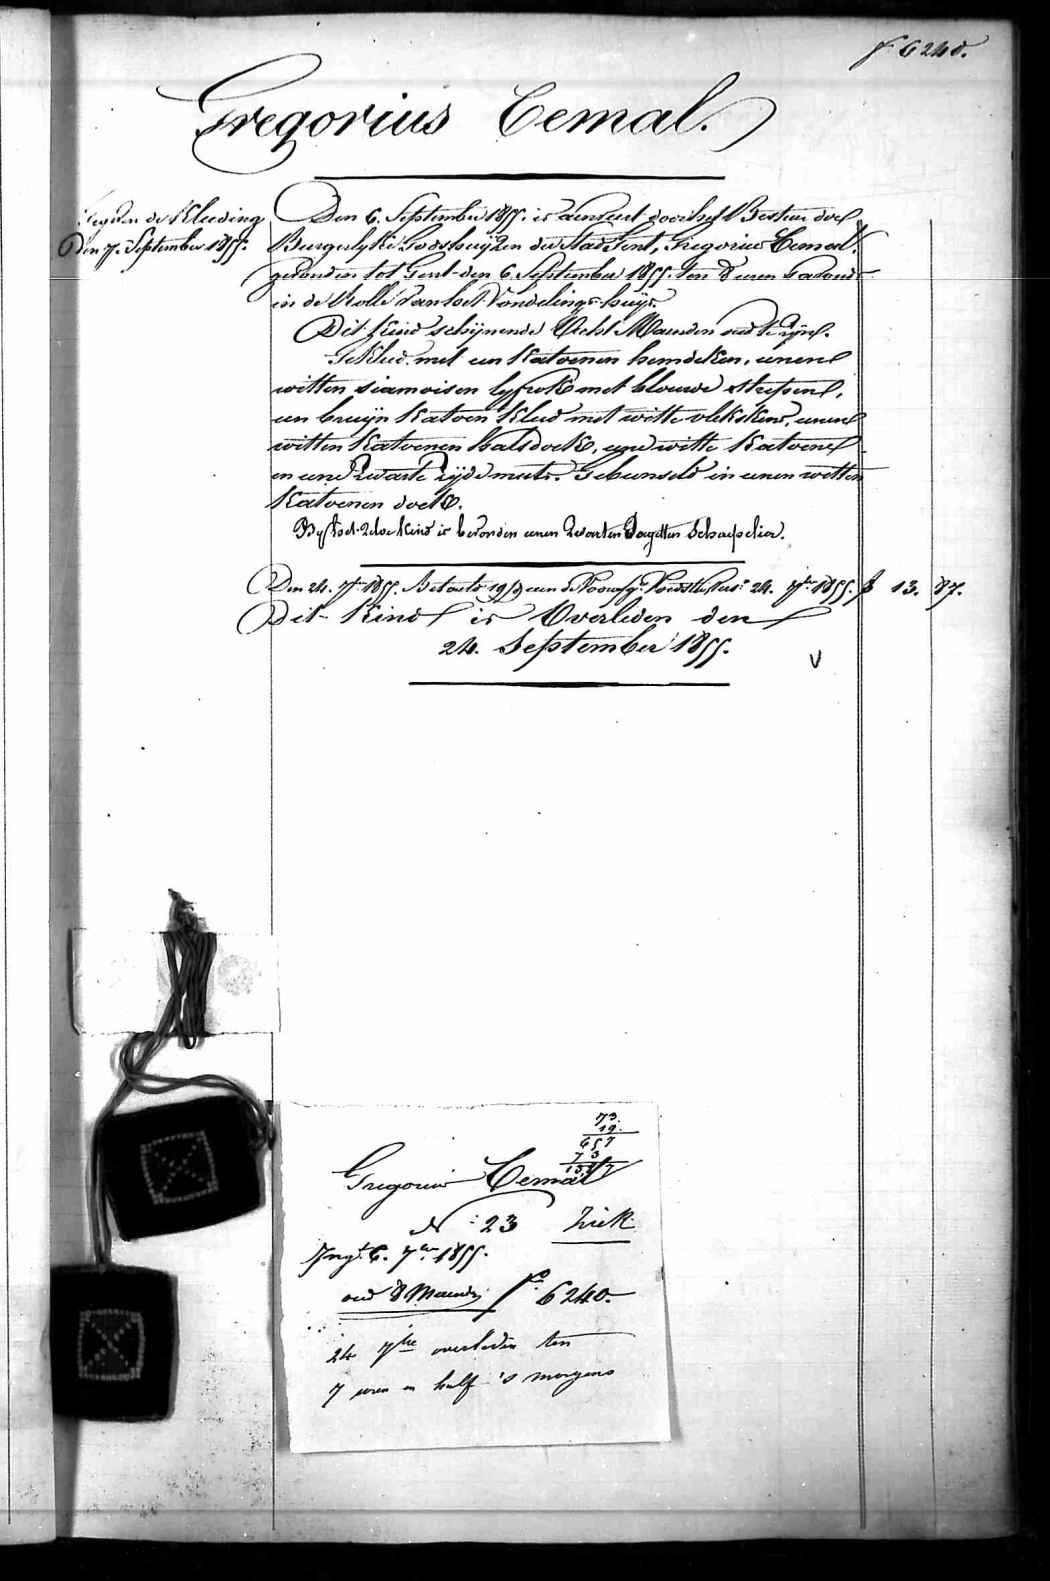 f° 6240.
Gregorius Cemal.
de Kleeding
Den 7. September 1855.
Den 6. September 1855. is aenveerd door het Bestuer der
Burgerlyke Godshuijzen der Stad Gent, Gregorius Cemal.
gevonden tot Gent den 6. September 1855. ten 8 uren s'avonds
in de Rolle van het Vondelingshuijs.
Dit kind schijnende Acht Maenden oud te zijn.
Gekleed met een Katoenen hemdeken, eenen
witten siamoisen lyfrok met blouwe strepen,
een bruijn Katoen Kleed met witte vlekskens, eenen
witten Katoenen halsdoek, eene witte Katoene
en eene Zwarte zijde muts. Gebunseld in eenen witten
Katoenen doek.
By het zelve Kind is bevonden eenen Zwarten Schapelier.
Den 24. 7bre 1855. Betaeld 19 24. 7bre 1855. f 13. 87.
Dit Kind is Overleden den
24. September 1855.
V
73.
19.
657
73
1387
Gregorius Cemal
N° 23 Ziek
Ingt 6. 7bre 1855.
oud 8 Maenden f° 6240.
24 7bre overleden ten
7 uren en half 's morgens